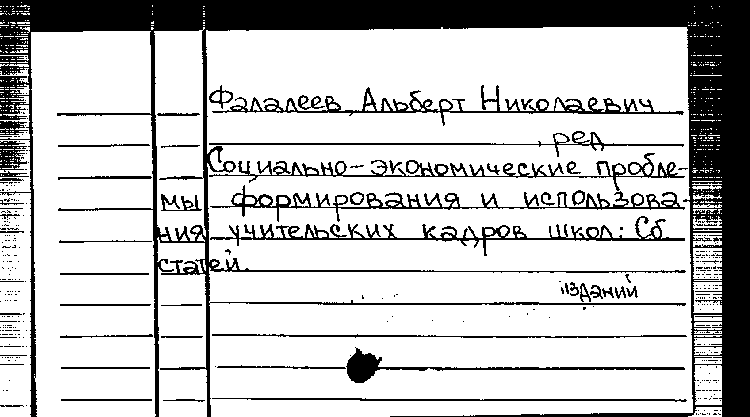 Фалалеев, Альберт Николаевич
, ред
Социально-экономические пробле-
мы формирования и использова-
ния учительских кадров школ: Сб.
статей.
изданий